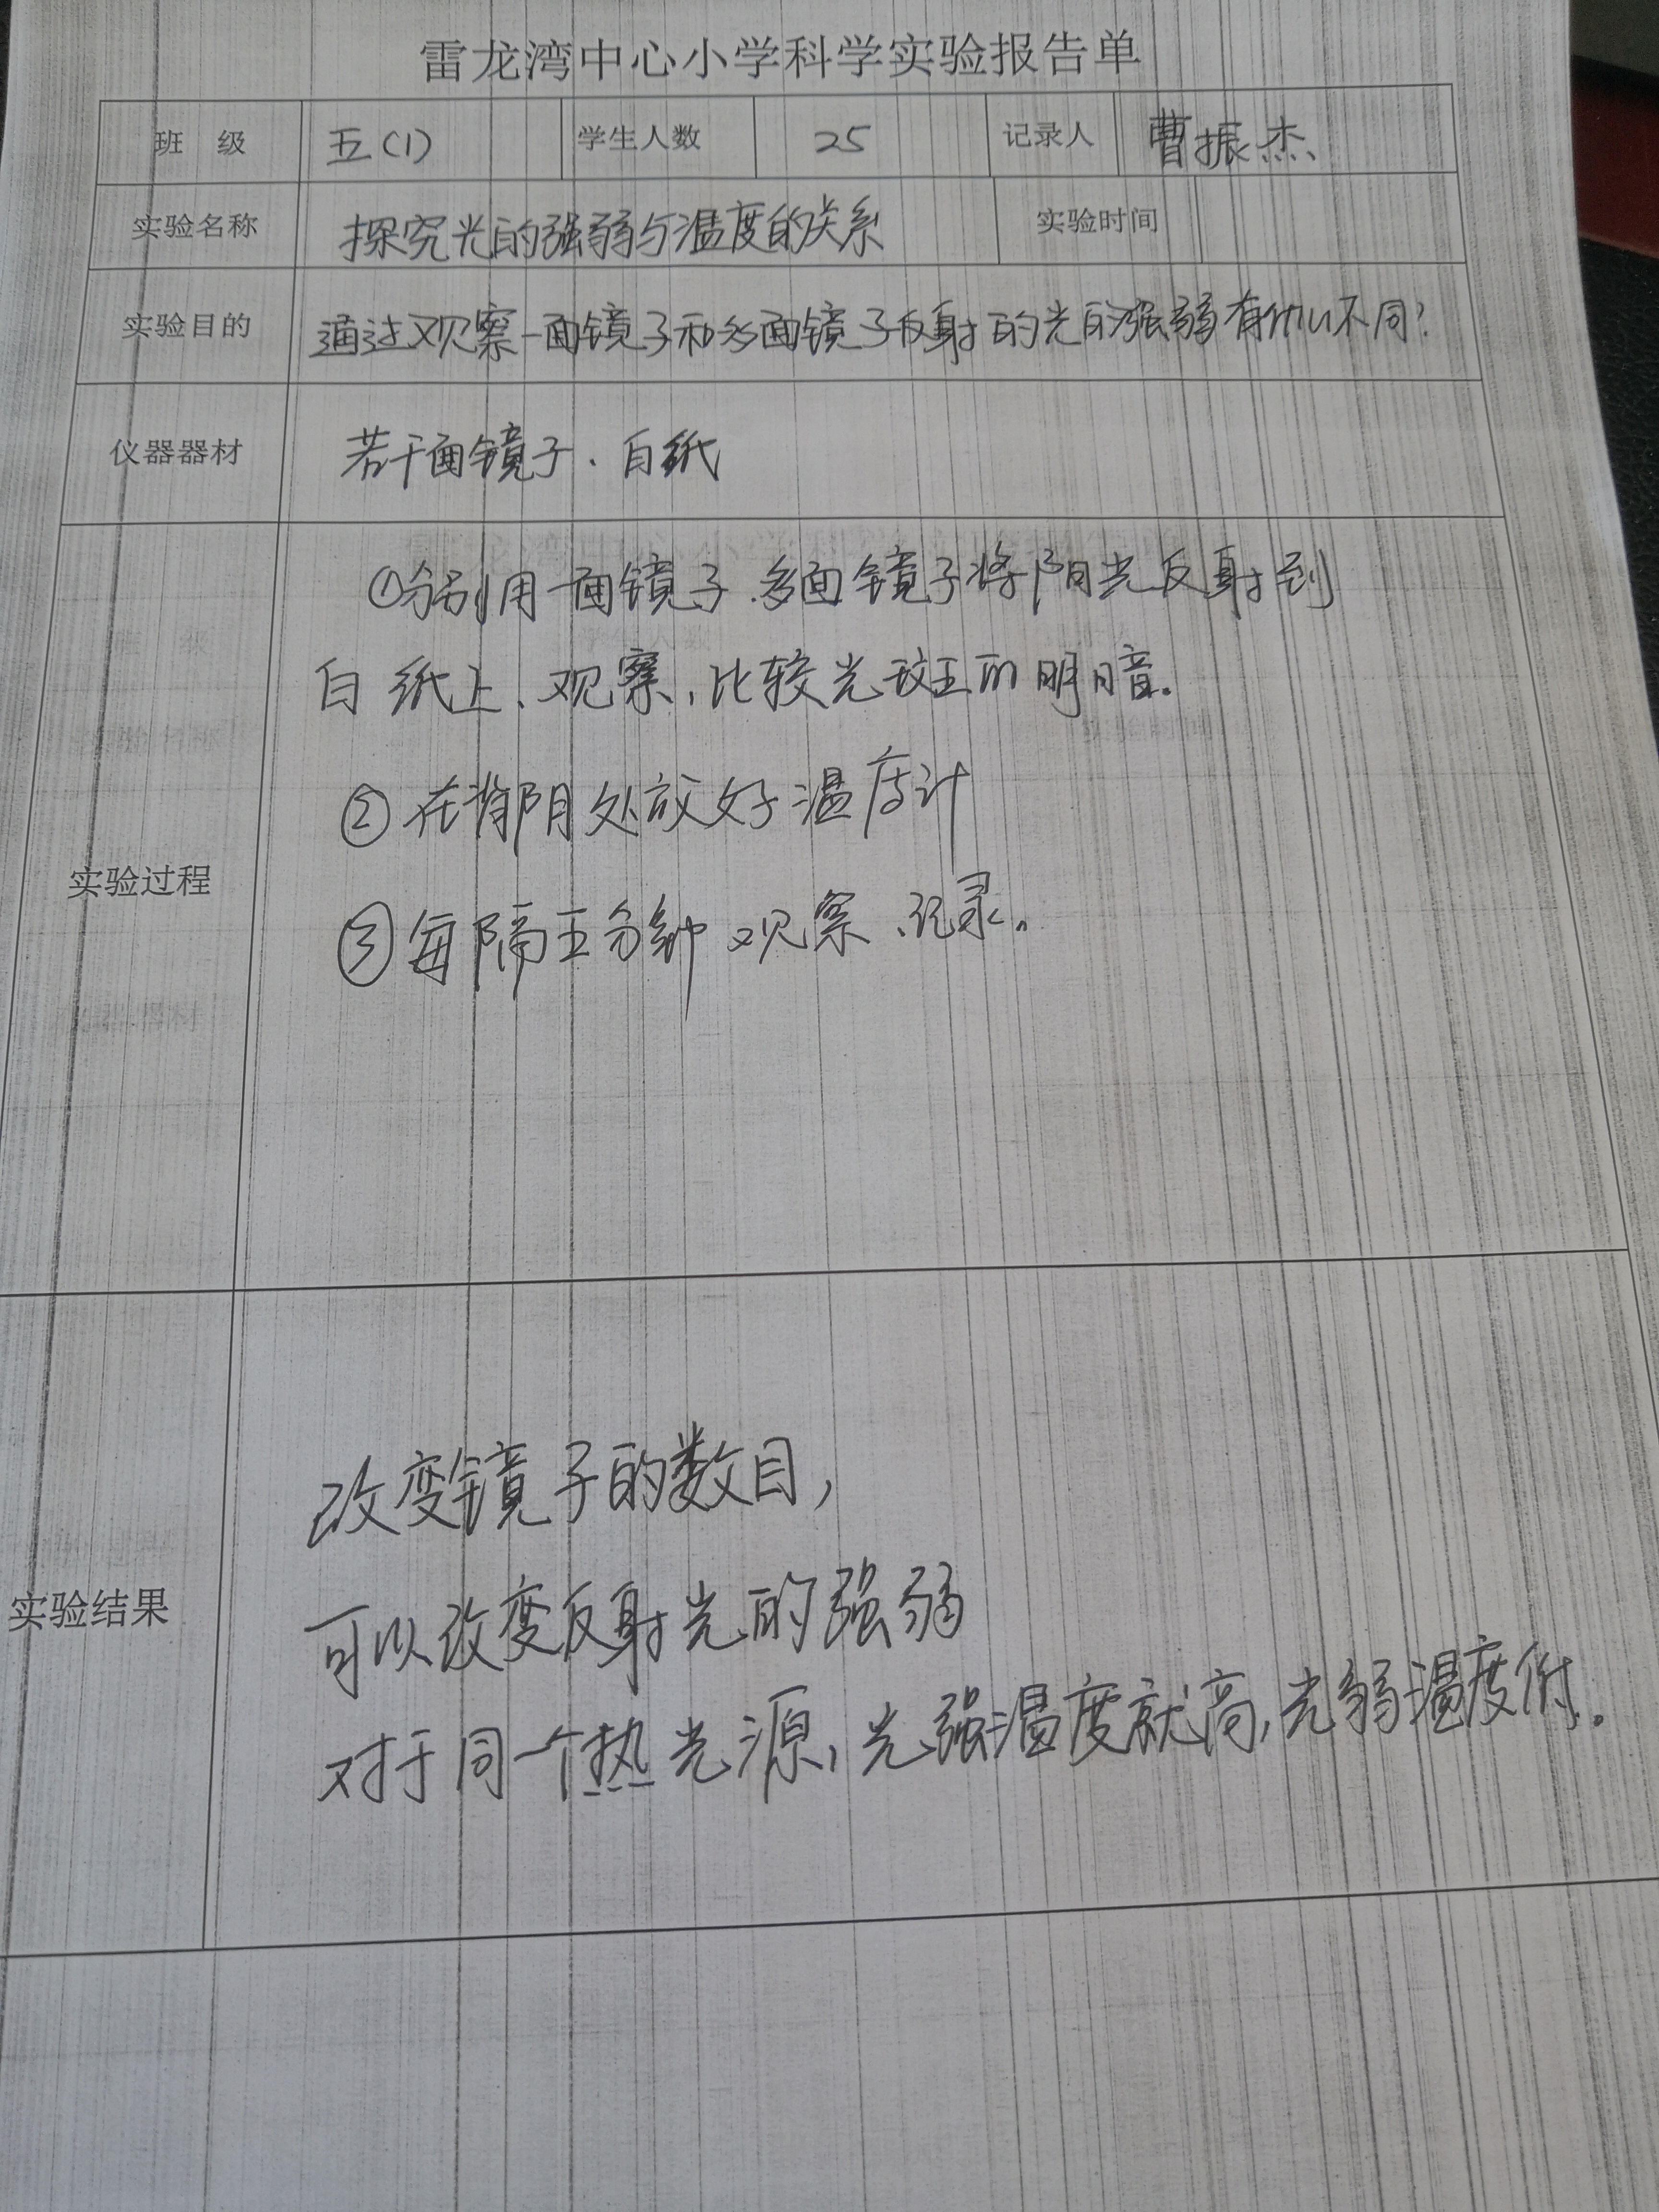 雷龙湾中心小学科学实验报告单
班 级 五(1) 学生人数 25 记录人 曹振杰
实验名称 探究光的强弱与温度的关系 实验时间
实验目的 通过观察一面镜子和多面镜子反射的光的强弱有什么不同?
仪器器材 若干面镜子、白纸
实验过程
①分别用一面镜子、多面镜子将阳光反射到
白纸上、观察,比较光斑的明暗。
②在背阴处放好温度计
③每隔五分钟观察、记录。
实验结果
改变镜子的数目,
可以改变反射光的强弱
对于同一个热光源,光强温度就高,光弱温度低。